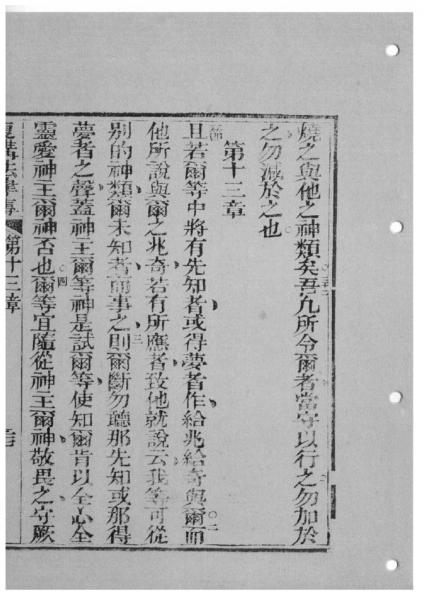 燒之與他之神類矣吾凡所令爾者當守以行之勿加於
之勿減於之也
第十三章
且若爾等中將有先知者或得夢者作給兆給奇與爾而
他所說與爾之兆奇若有所應者致他就說云我等可從
別的神類爾未知者而事之則爾斷勿聽那先知或那得
夢者之聲蓋神王爾等神是試爾等使知爾肯以全心全
靈愛神王爾神否也爾等宜隨從神王爾神敬畏之守厥
第十三章